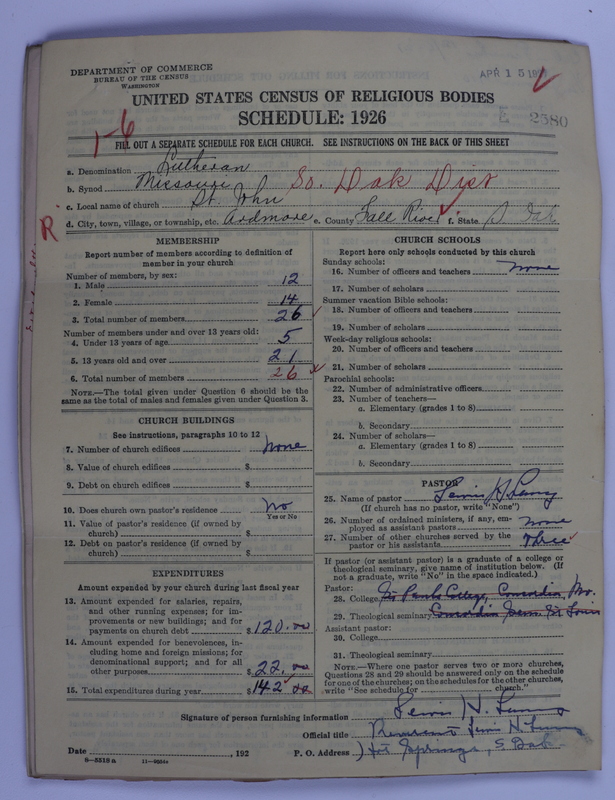 DEPARTMENT OF COMMERCE
BUREAU OF THE CENSUS
WASHINGTON
APR 15
UNITED STATES CENSUS OF RELIGIOUS BODIES
SCHEDULE: 1926
2580
1-6
FILL OUT A SEPARATE SCHEDULE FOR EACH CHURCH. SEE INSTRUCTIONS ON THE BACK OF THIS SHEET
a. Denomination Lutheran
b. Synod Missouri So. Dak Dist
c. Local name of church St. John
R.
d. City, town, village, or township, etc. Ardmore e. County Fall River f. State S. Dak
MEMBERSHIP
Report number of members according to definition of member in your church
Number of members, by sex:
1. Male 12
2. Female 14
3. Total number of members 26
Number of members under and over 13 years old:
4. Under 13 years of age 5
5. 13 years old and over 21
6. Total number of members 26
NOTE.—The total given under Question 6 should be the
same as the total of males and females given under Question 3.
CHURCH BUILDINGS
See instructions, paragraphs 10 to 12
7. Number of church edifices none
8. Value of church edifices $
9. Debt on church edifices $
10. Does church own pastor's residence? No
Yes or No
11. Value of pastor's residence (if owned by
church) $
12. Debt on pastor's residence (if owned by
church) $
EXPENDITURES
Amount expended by your church during last fiscal year
13. Amount expended for salaries, repairs,
and other running expense; for im-
provements or new buildings; and for
payments on church debt $ 120.00
14. Amount expended for benevolences, in-
cluding home and foreign missions; for
denominational support; and for all
other purposes $ 22.00
15. Total expenditures during year $ 142.00
CHURCH SCHOOLS
Report here only schools conducted by this church
Sunday schools:
16. Number of officers and teachers none
17. Number of scholars
Summer vacation Bible schools:
18. Number of officers and teachers
19. Number of scholars
Week-day religious schools:
20. Number of officers and teachers
21. Number of scholars
Parochial schools:
22. Number of administrative officers
23. Number of teachers—
a. Elementary (grades 1 to 8)
b. Secondary
24. Number of scholars—
a. Elementary (grades 1 to 8)
b. Secondary
PASTOR
25. Name of pastor
(If church has no pastor, write "None")
26. Number of ordained ministers, if any, em-
ployed as assistant pastors none
27. Number of other churches served by the
pastor or his assistants Three
If pastor (or assistant pastor) is a graduate of a college or
theological seminary, give name of institution below. (If
not a graduate, write "No" in the space indicated.)
Pastor:
28. College St Pauls College, Concordia, Mo.
29. Theological seminary Concordia Sem. St Louis
Assistant pastor:
30. College
31. Theological seminary
NOTE.—Where one pastor serves two or more churches,
Questions 28 and 29 should be answered only on the schedule
for one of the churches; on the schedules for the other churches,
write "See schedule for church."
Signature of person furnishing information
Official title Reverend
Date , 192 P. O. Address Hot Springs, S. Dak.
8—5519 a 11—9534